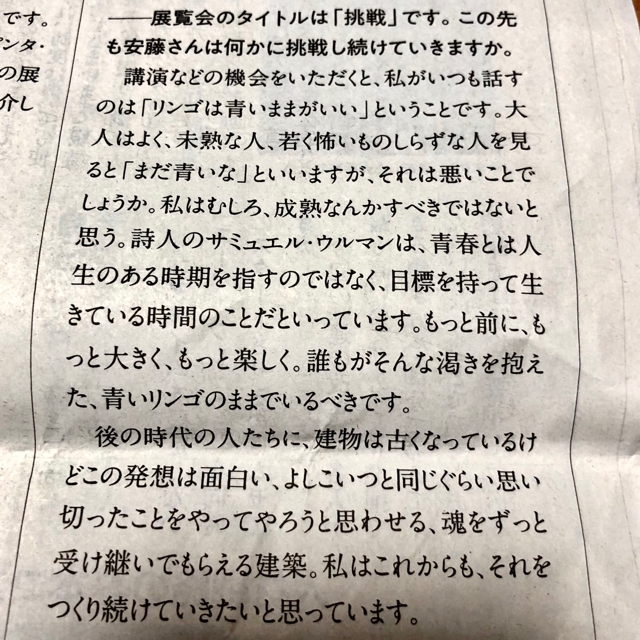 です。
ンタ・
の展
介し
――展覧会のタイトルは「挑戦」です。この先
も安藤さんは何かに挑戦し続けていきますか。
講演などの機会をいただくと、私がいつも話す
のは「リンゴは青いままがいい」ということです。大
人はよく、未熟な人、若く怖いものしらずな人を見
ると「まだ青いな」といいますが、それは悪いことで
しょうか。私はむしろ、成熟なんかすべきではないと
思う。詩人のサミュエル・ウルマンは、青春とは人
生のある時期を指すのではなく、目標を持って生
きている時間のことだといっています。もっと前に、も
っと大きく、もっと楽しく。誰もがそんな渇きを抱え
た、青いリンゴのままでいるべきです。
後の時代の人たちに、建物は古くなっているけ
どこの発想は面白い、よしこいつと同じぐらい思い
切ったことをやってやろうと思わせる、魂をずっと
受け継いでもらえる建築。私はこれからも、それを
つくり続けていきたいと思っています。